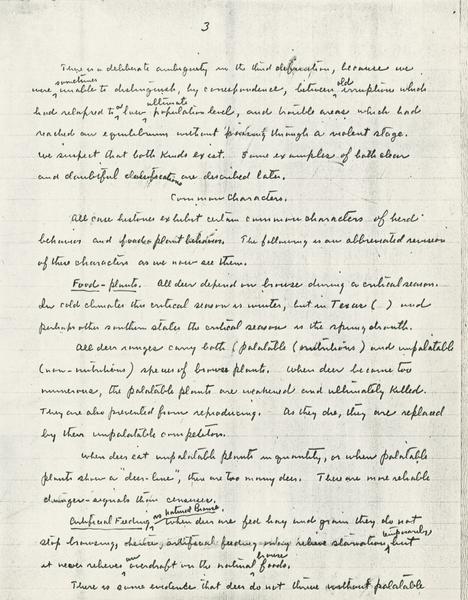 3
There is a deliberate ambiguity in the third definition, because we
were sometimes unable to distinguish, by correspondence, between old irruptions which
had relapsed to a lower ultimate population level, and trouble areas which had
reached an equilibrium without passing through a violent stage.
We suspect that both kinds exist. Some examples of both clear
and doubtful classifications are described later.
Common Characters.
All case histories exhibit certain common characters of herd
behavior and plant behavior. The following is an abbreviated revision
of these characters as we now see them.
Food-plants. All deer depend on browse during a critical season.
In cold climates this critical season is winter, but in Texas ( ) and
perhaps other southern states the critical season is the spring drouth.
All deer ranges carry both (palatable (nutritious) and unpalatable
(non-nutritious) species of browse plants. When deer become too
numerous, the palatable plants are weakened and ultimately killed.
They are also prevented from reproducing. As they die, they are replaced
by their unpalatable competitors.
When deer eat unpalatable plants in quantity, or when palatable
plants show a "deer-line", there are too many deer. These are more reliable
danger-signals than censuses.
Artificial Feeding vs Natural Browse. When deer are fed hay and grain they do not
stop browsing, hence, artificial feeding may relieve starvation temporarily, but
it never relieves an overdraft on the natural browse foods.
There is some evidence that deer do not thrive without palatable